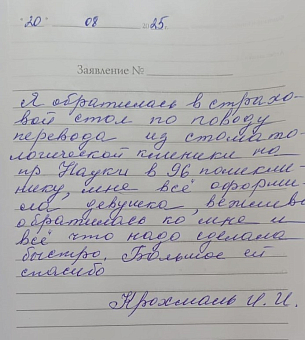 "20" 08 2025.
Заявление №
Я обратилась в страхо-
вой стол по поводу
перевода из стомато-
логической клиники на
пр Науки в 96 поликли-
нику, мне всё оформи-
ла, девушка, вежливо
обратилась ко мне и
всё что надо сделала
быстро. Большое ей
спасибо
Крохмаль И. И.